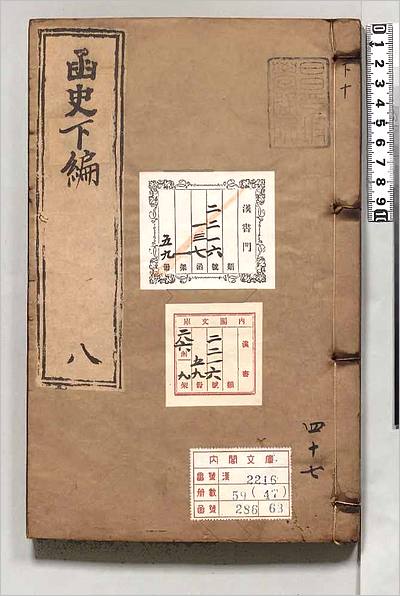 函史下編
八
下十
四十七
漢書門
二二一六
號
三七
函
架
五九
冊
類
内閣文庫
漢書
類
二二一六
號
五九
冊
二八六
函
九
架
内閣文庫
番號
漢
2216
冊數
59(47)
函號
286
63
0 1 2 3 4 5 6 7 8 9 10